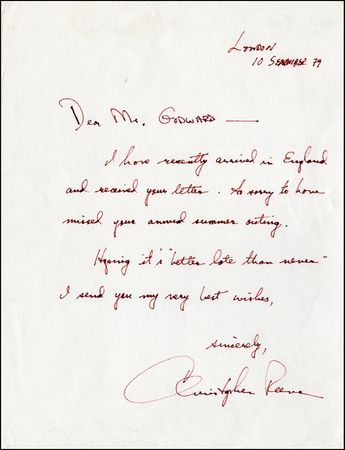 London
10 September 79
Dear Mr. GODWARD —
I have recently arrived in England
and received your letter. So sorry to have
missed your annual summer outing.
Hoping it's "better late than never"
I send you my very best wishes,
sincerely,
Christopher Reeve